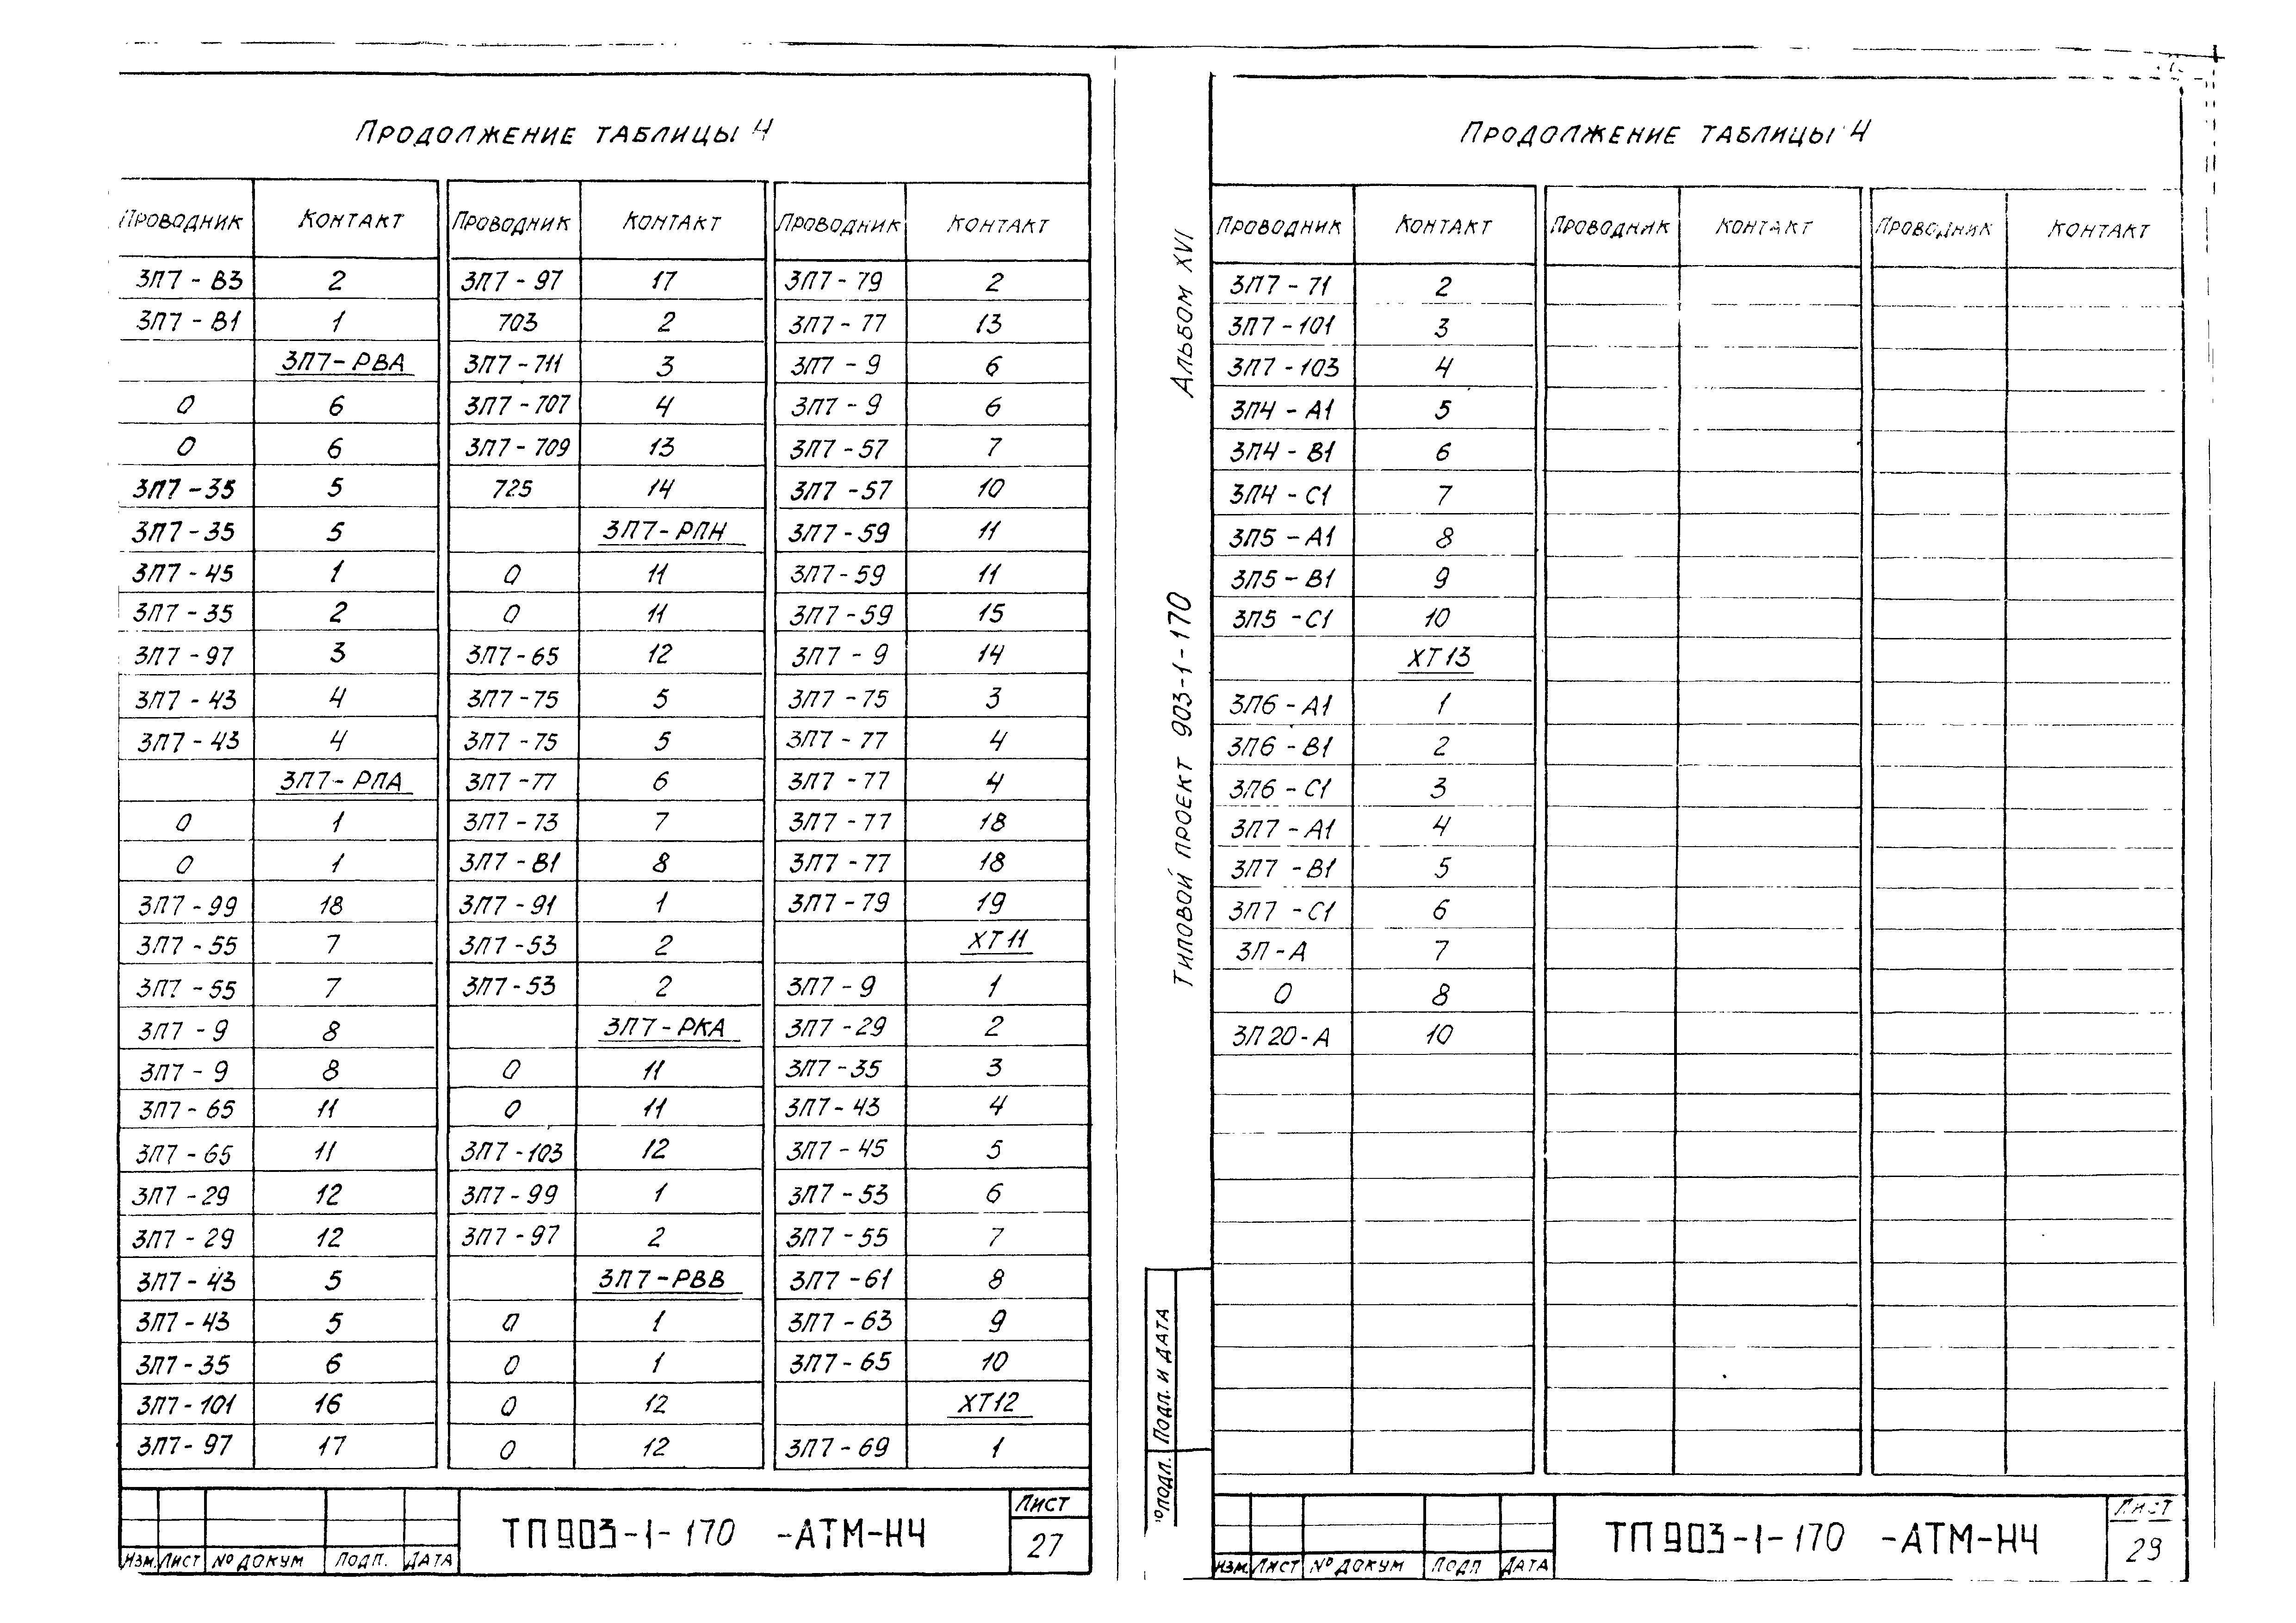 Продолжение таблицы 4
Проводник Контакт Проводник Контакт Проводник Контакт
3П7-В3 2 3П7-97 17 3П7-79 2
3П7-В1 1 703 2 3П7-77 13
3П7-РВА 3П7-711 3 3П7-9 6
0 6 3П7-707 4 3П7-9 6
0 6 3П7-709 13 3П7-57 7
3П7-35 5 725 14 3П7-57 10
3П7-35 5 3П7-РПН 3П7-59 11
3П7-45 1 0 11 3П7-59 11
3П7-35 2 0 11 3П7-59 15
3П7-97 3 3П7-65 12 3П7-9 14
3П7-43 4 3П7-75 5 3П7-75 3
3П7-43 4 3П7-75 5 3П7-77 4
3П7-РПА 3П7-77 6 3П7-77 4
0 1 3П7-73 7 3П7-77 18
0 1 3П7-В1 8 3П7-77 18
3П7-99 18 3П7-91 1 3П7-79 19
3П7-55 7 3П7-53 2 ХТ11
3П7-55 7 3П7-53 2 3П7-9 1
3П7-9 8 3П7-РКА 3П7-29 2
3П7-9 8 0 11 3П7-35 3
3П7-65 11 0 11 3П7-43 4
3П7-65 11 3П7-103 12 3П7-45 5
3П7-29 12 3П7-99 1 3П7-53 6
3П7-29 12 3П7-97 2 3П7-55 7
3П7-43 5 3П7-РВВ 3П7-61 8
3П7-43 5 0 1 3П7-63 9
3П7-35 6 0 1 3П7-65 10
3П7-101 16 0 12 ХТ12
3П7-97 17 0 12 3П7-69 1
Изм. Лист № докум Подп. Дата
ТП 903-1-170 -АТМ-Н4
Лист
27
Альбом XVI
Типовой проект 903-1-170
Подп. и дата
подл.
Продолжение таблицы 4
Проводник Контакт Проводник Контакт Проводник Контакт
3П7-71 2
3П7-101 3
3П7-103 4
3П4-А1 5
3П4-В1 6
3П4-С1 7
3П5-А1 8
3П5-В1 9
3П5-С1 10
ХТ13
3П6-А1 1
3П6-В1 2
3П6-С1 3
3П7-А1 4
3П7-В1 5
3П7-С1 6
3П-А 7
0 8
3П20-А 10
Изм. Лист № докум Подп Дата
ТП 903-1-170 -АТМ-Н4
Лист